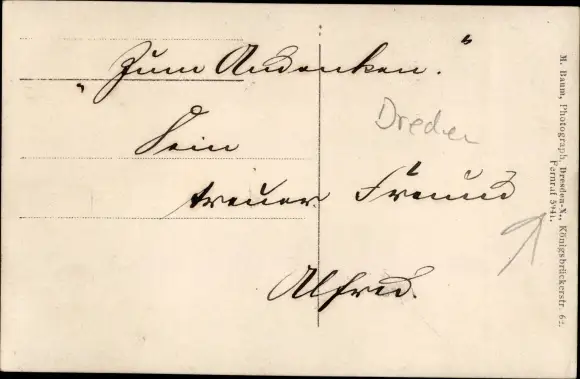 „Zum Andenken.“
Dein
treuer Freund
Alfred.
Dresden
M. Baum, Photograph, Dresden-N., Königsbrückerstr. 62.
Fernruf 5941.